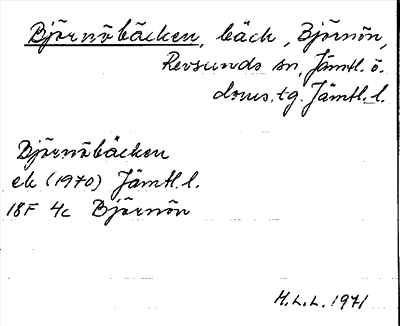 Björnöbäcken, bäck, Björnön,
Revsunds sn, Jämtl. ö.
doms. tg. Jämtl. l.
Björnöbäcken
ek (1970) Jämtl. l.
18F 4c Björnön
H.L.L. 1971